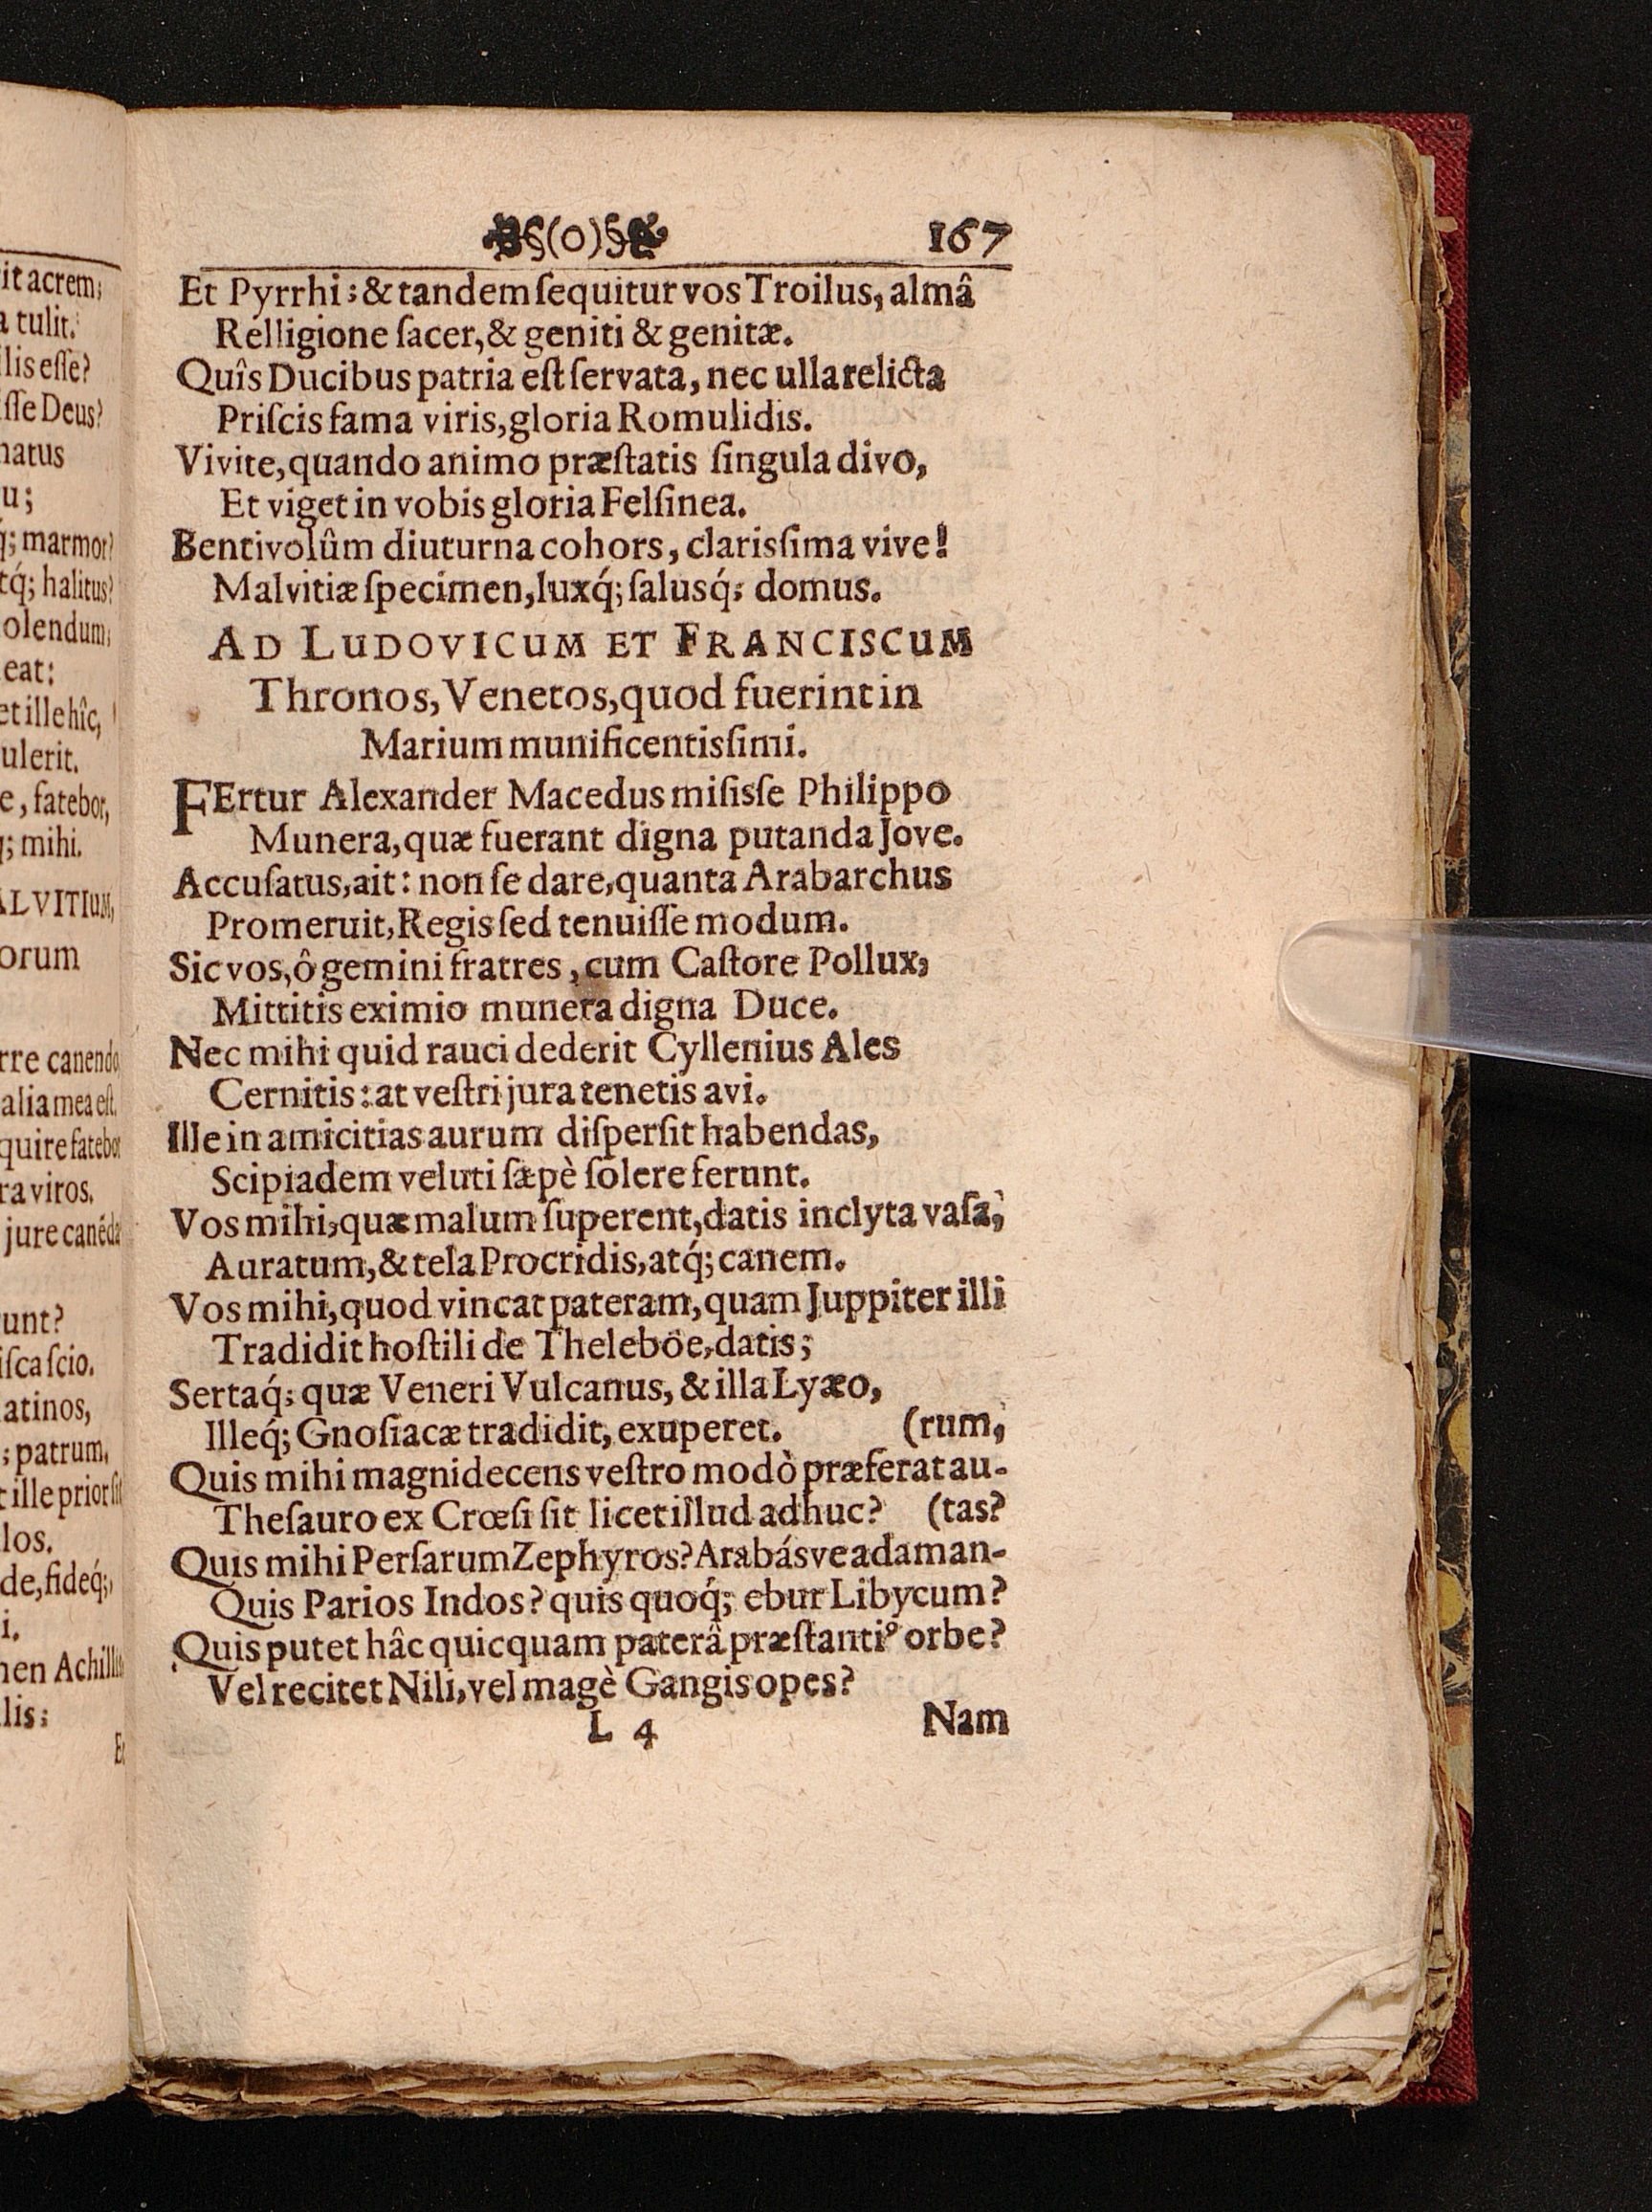 it acrem;
a tulit.
lis esse?
isse Deus?
natus
u;
q́; marmor?
tq́; halitus?
olendum,
eat:
et ille hîc,
ulerit.
e, fatebor,
q; mihi.
ALVITIUM,
orum
rre canendo
alia mea est.
quire fatebor
ra viros.
jure canéda
unt?
isca scio.
atinos,
; patrum.
t ille prior sit
los.
de, fideq́;
i.
nen Achillis
lis:
Et
§(o)§ 167
Et Pyrrhi; & tandem ſequitur vos Troilus, almâ
Relligione ſacer, & geniti & genitæ.
Quîs Ducibus patria eſt ſervata, nec ulla relicta
Priſcis fama viris, gloria Romulidis.
Vivite, quando animo præſtatis ſingula divo,
Et viget in vobis gloria Felſinea.
Bentivolûm diuturna cohors, clarisſima vive!
Malvitiæ ſpecimen, luxq́; ſalusq́; domus.
AD LUDOVICUM ET FRANCISCUM
Thronos, Venetos, quod fuerint in
Marium munificentisſimi.
FErtur Alexander Macedus miſisſe Philippo
Munera, quæ fuerant digna putanda Jove.
Accuſatus, ait: non ſe dare, quanta Arabarchus
Promeruit, Regis ſed tenuiſſe modum.
Sic vos, ô gemini fratres, cum Caſtore Pollux,
Mittitis eximio munera digna Duce.
Nec mihi quid rauci dederit Cyllenius Ales
Cernitis: at veſtri jura tenetis avi.
Ille in amicitias aurum diſperſit habendas,
Scipiadem veluti ſæpè ſolere ferunt.
Vos mihi, quæ malum ſuperent, datis inclyta vaſa,
Auratum, & tela Procridis, atq́; canem.
Vos mihi, quod vincat pateram, quam Juppiter illi
Tradidit hoſtili de Theleböe, datis;
Sertaq́; quæ Veneri Vulcanus, & illa Lyæo,
Illeq́; Gnoſiacæ tradidit, exuperet. (rum,
Quis mihi magni decens veſtro modò præferat au-
Theſauro ex Crœſi ſit licet illud adhuc? (tas?
Quis mihi Perſarum Zephyros? Arabásve adaman-
Quis Parios Indos? quis quoq́; ebur Libycum?
Quis putet hâc quicquam paterâ præſtantiꝰ orbe?
Vel recitet Nili, vel magè Gangis opes?
L 4 Nam